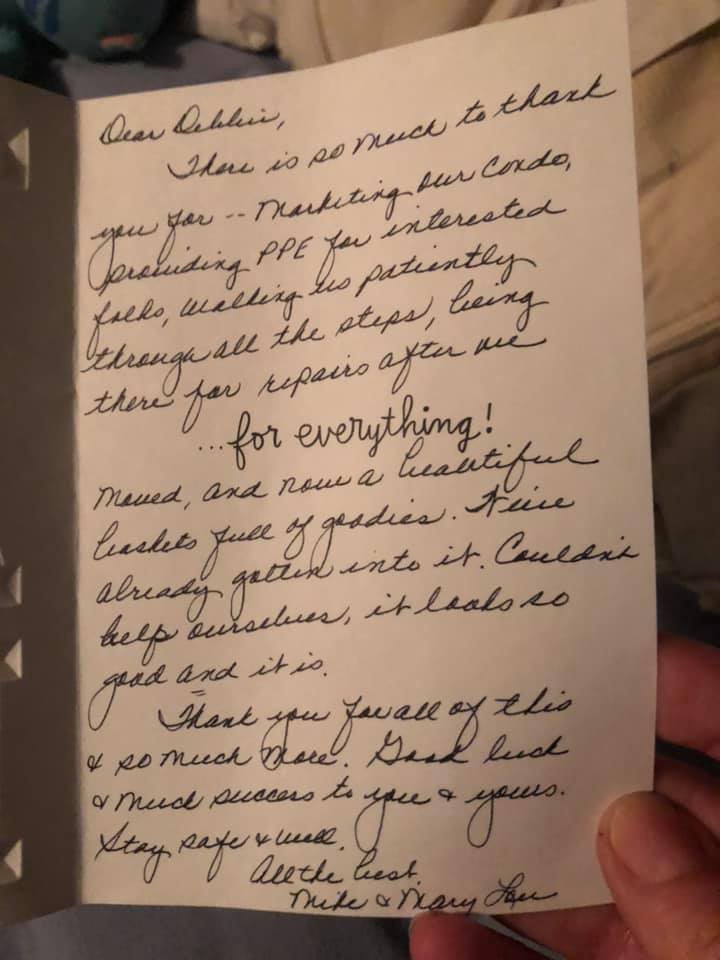 Dear Debbie,
There is so much to thank
you for -- Marketing our Condo,
providing PPE for interested
folks, walking us patiently
through all the steps, being
there for repairs after we
...for everything!
moved, and now a beautiful
baskets full of goodies. We've
already gotten into it. Couldn't
help ourselves, it looks so
good and it is.
Thank you for all of this
& so much more. Good luck
& much success to you & yours.
Stay safe & well.
All the best.
Mike & Mary Lou